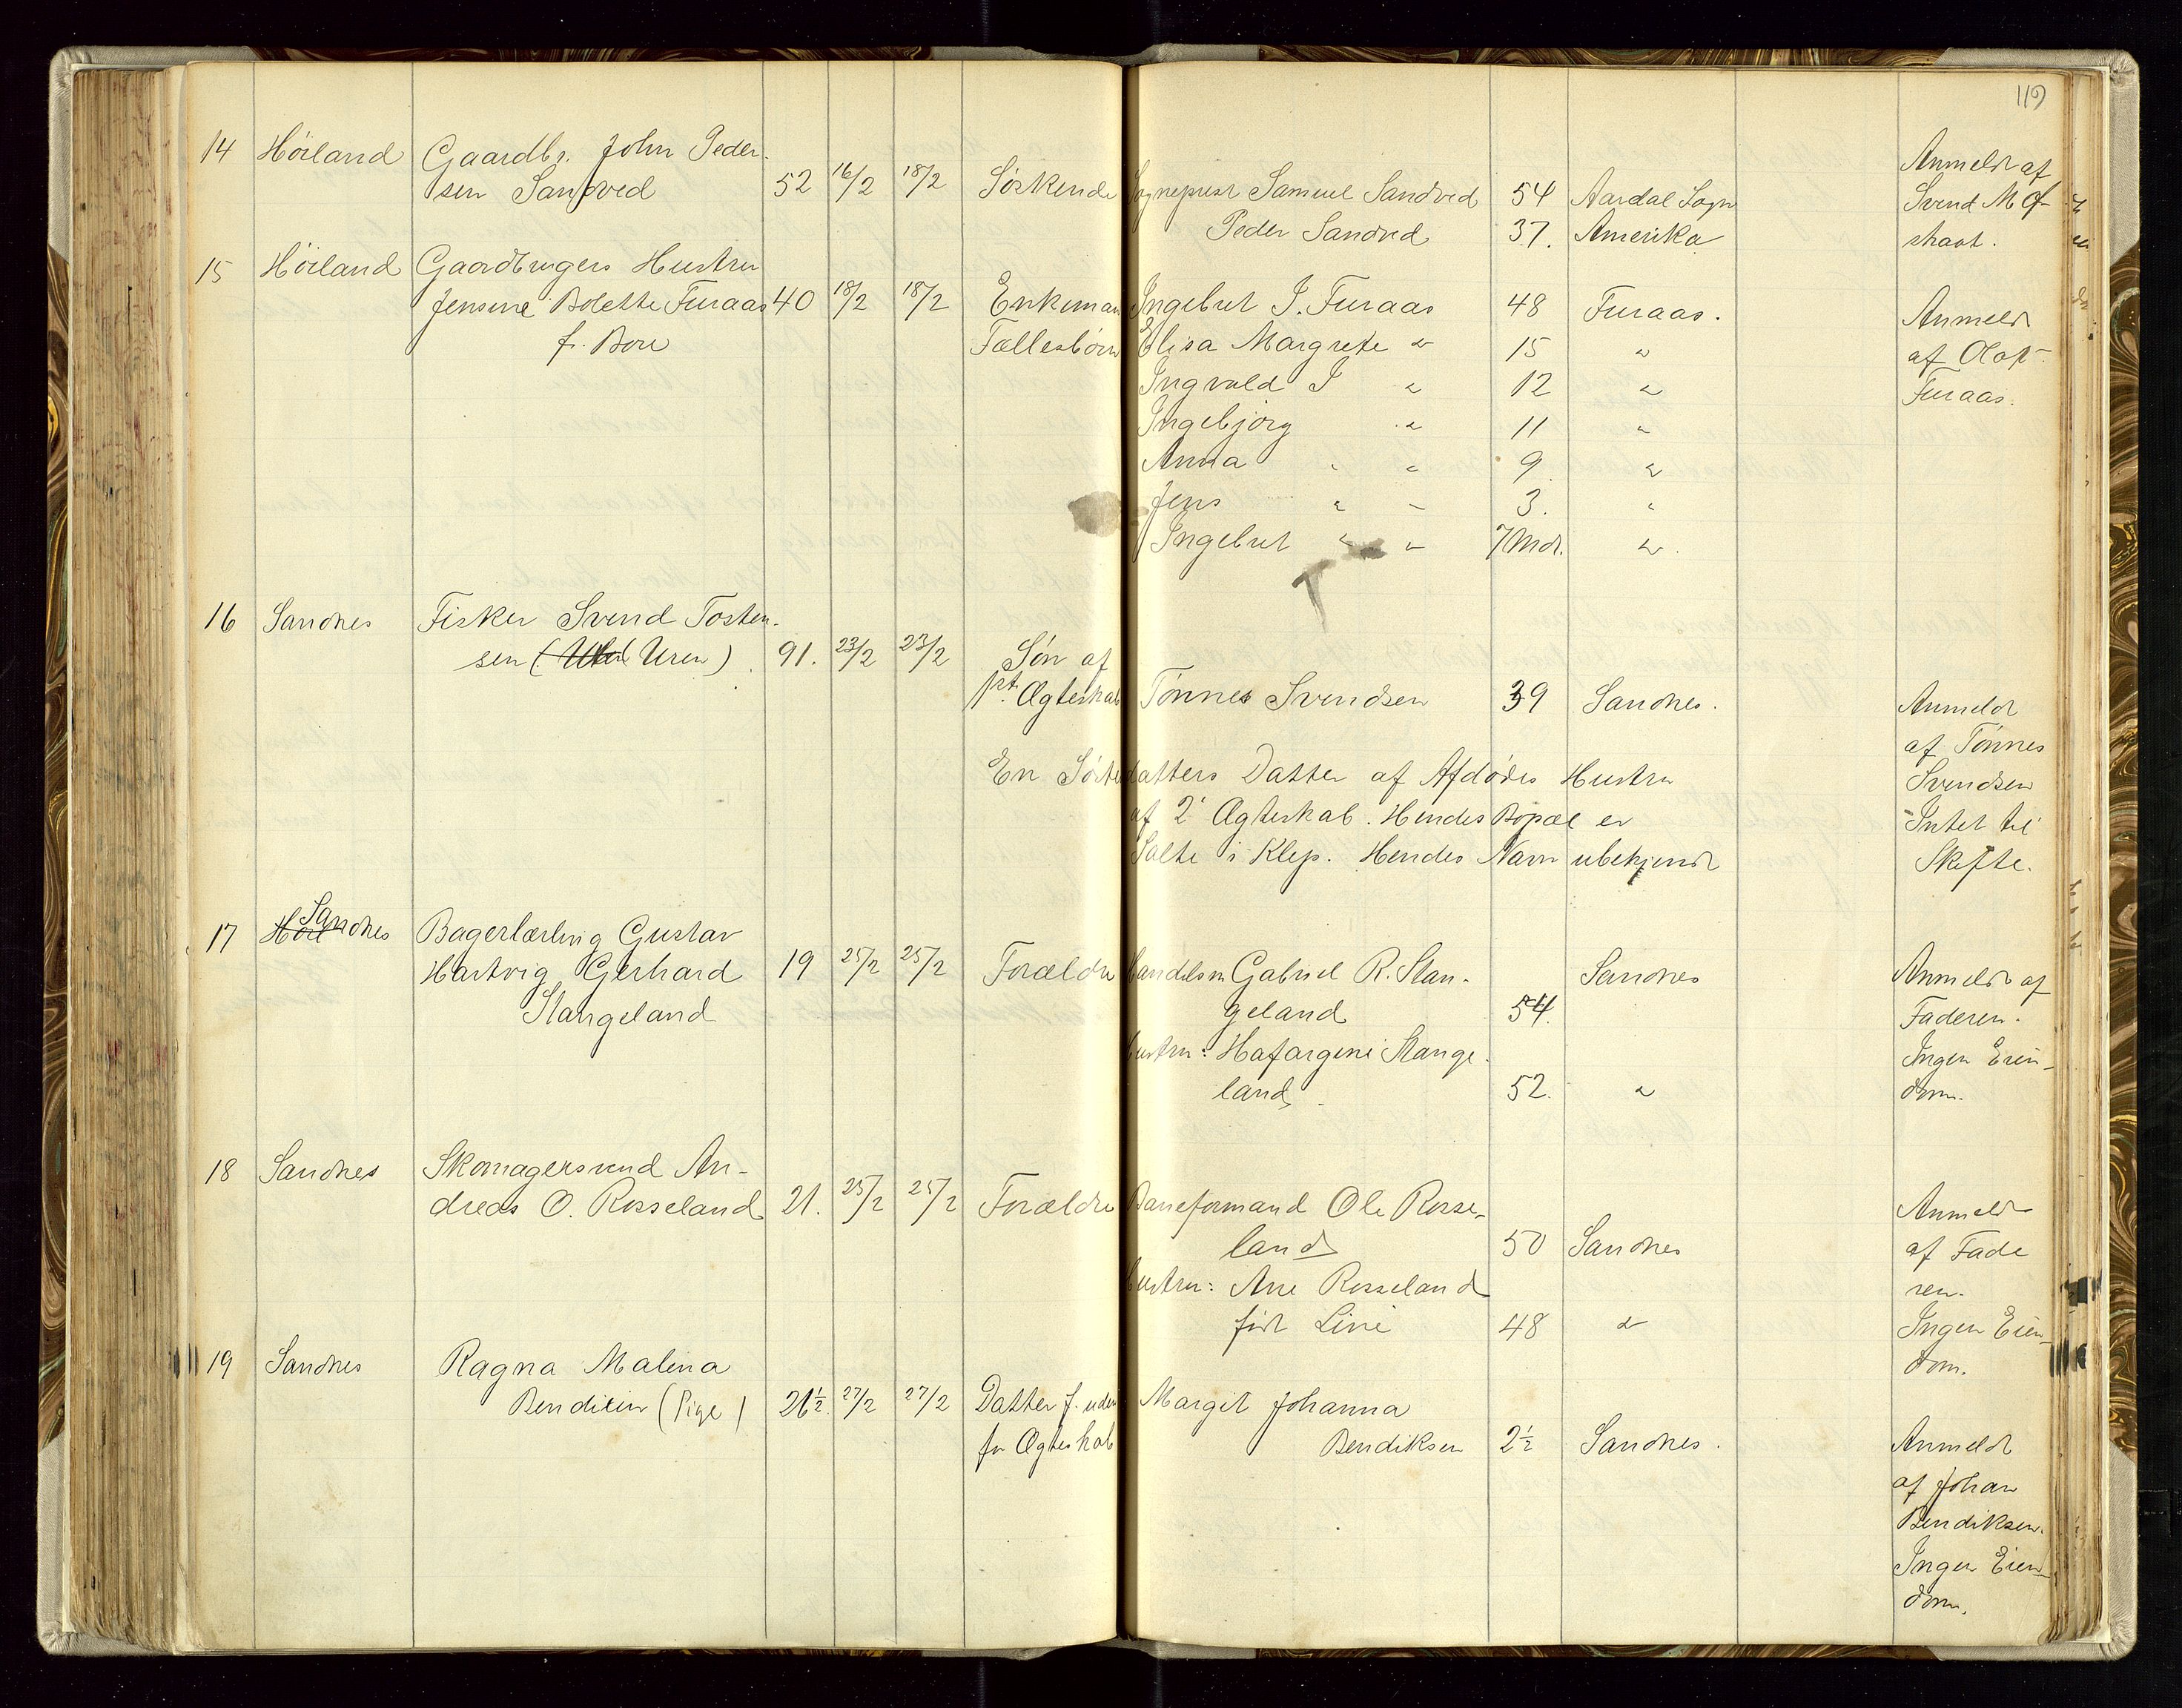 119
14 Höiland Gaardbr. John Peder-
sen Sandved 52 16/2 18/2 Söskende Sogneprest Samuel Sandved 54 Aardal Sogn
Peder Sandved 37. Amerika
Anmeldt af
Svend M Of-
straat.
15 Höiland Gaardbrugers Hustru
Jensine Bolette Furaas 40 18/2 18/2 Enkeman Ingebret I. Furaas 48 Furaas.
f. Bore Fællesbörn Elisa Margrete " 15 "
Ingvald I " 12 "
Ingebjörg " 11 "
Anna " " 9. "
Jens " " 3. "
Ingebret " " 7 Mdr. "
Anmeldt
af Olaf
Furaas.
16 Sandnes Fisker Svend Tosten-
sen ( Uren) 91. 23/2 23/2 Sön af
1st. Ægteskab Tönnes Svendsen 39 Sandnes.
En Sösterdatters Datter af Afdödes Hustru
af 2' Ægteskab. Hendes Bopæl er
Salte i Klep. Hendes Navn ubekjendt
Anmeldt
af Tönnes
Svendsen
Intet til
Skifte.
17 Sandnes Bagerlærling Gustav
Hartvig Gerhard 19 25/2 25/2 Forældre Handelsm Gabriel R. Stan- Sandnes
Stangeland geland 54.
Hustru: Stange-
land 52. "
Anmeldt af
Faderen.
Ingen Eien-
dom.
18 Sandnes Skomagersvend An-
dreas O. Rosseland 21. 25/2 25/2 Forældre Baneformand Ole Rosse-
land 50 Sandnes
Hustru: Ane Rosseland
född 48 "
Anmeldt
af Fade
ren.
Ingen Eien-
dom.
19 Sandnes Ragna Malena
Bendixen (Pige) 21½. 27/2 27/2 Datter f. uden Margit Johanna
for Ægteskab Bendiksen 2½ Sandnes.
Anmeldt
af Johan
Bendiksen.
Ingen Eien-
dom.